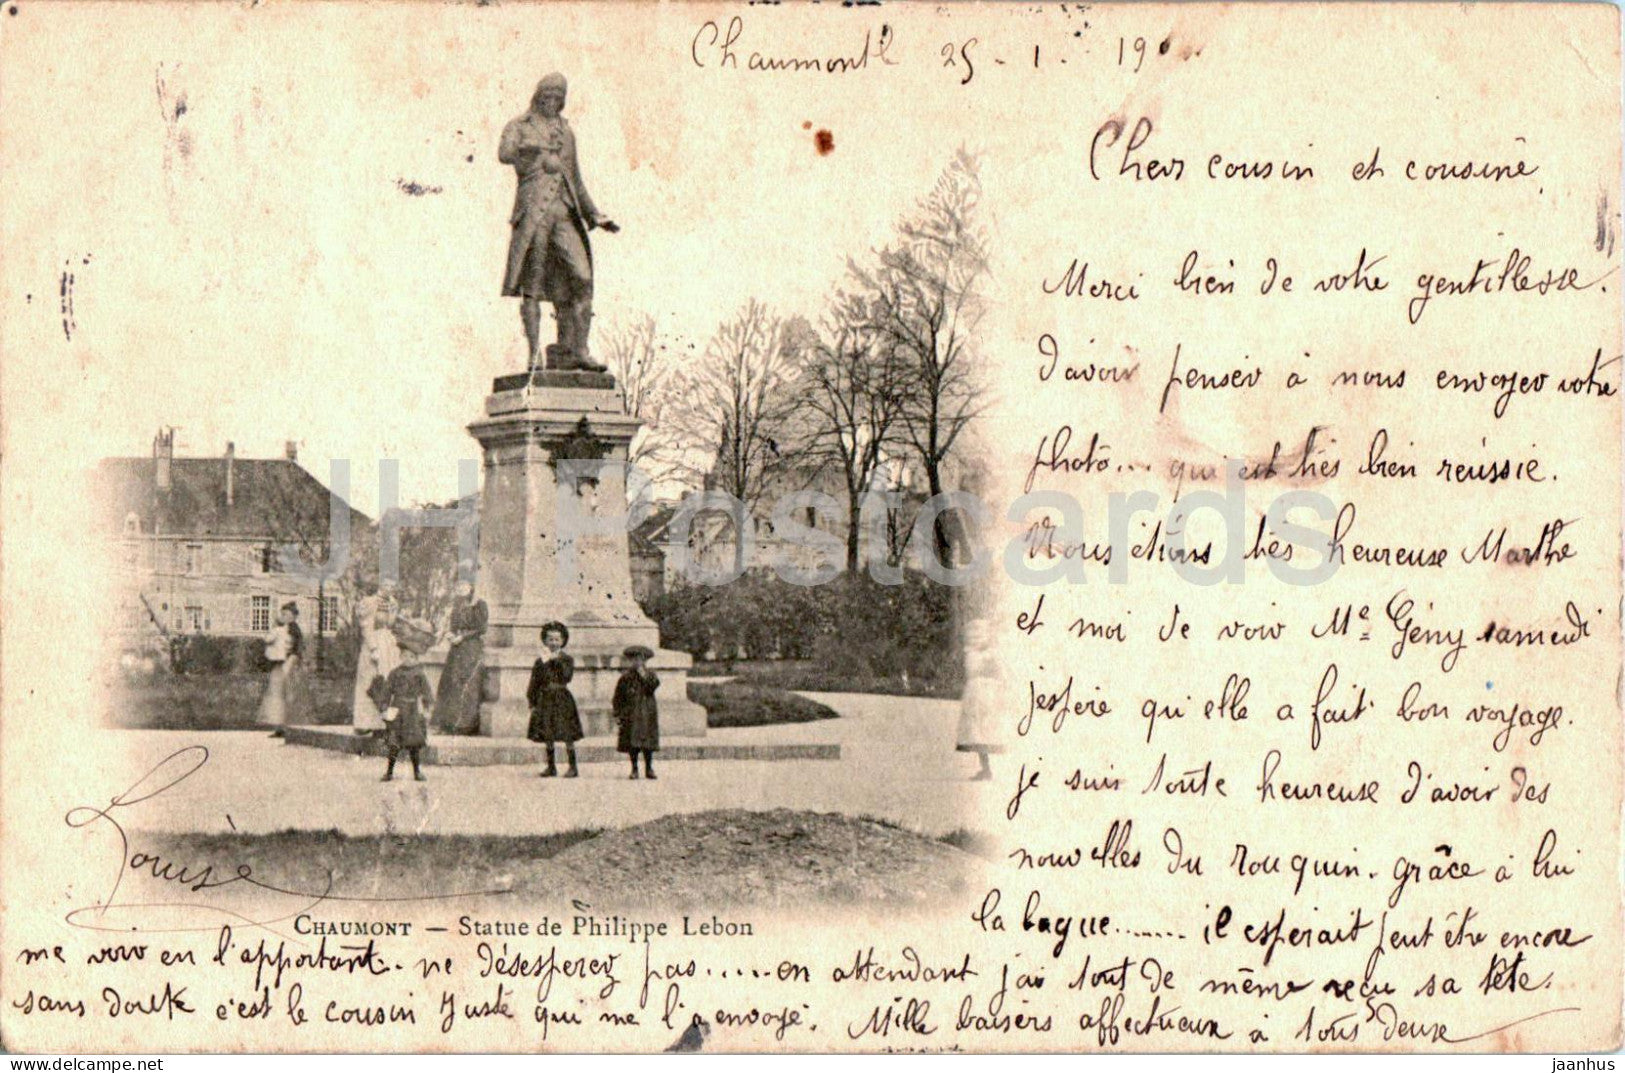 Chaumont 25 - 1 - 19
Chers cousin et cousine
Merci bien de votre gentillesse.
d'avoir penser à nous envoyer votre
photo... qui est très bien réussie.
Nous étions très heureuse Marthe
et moi de voir Me Gény samedi
j'espère qu'elle a fait bon voyage.
je suis toute heureuse d'avoir des
nouvelles du rouquin. grâce à lui
la bague....... il esperait peut être encore
me voir en l'apportant. ne désesperez pas.....en attendant j'ai tout de même reçu sa tête.
sans doute c'est le cousin Juste qui me l'a envoyé. Mille baisers affectueux à tous deux
Louise
CHAUMONT — Statue de Philippe Lebon
JH Postcards
jaanhus